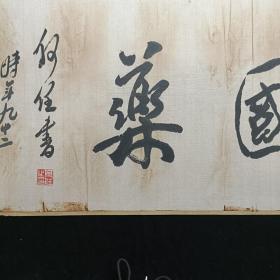 國藥
何任書
時年九十二